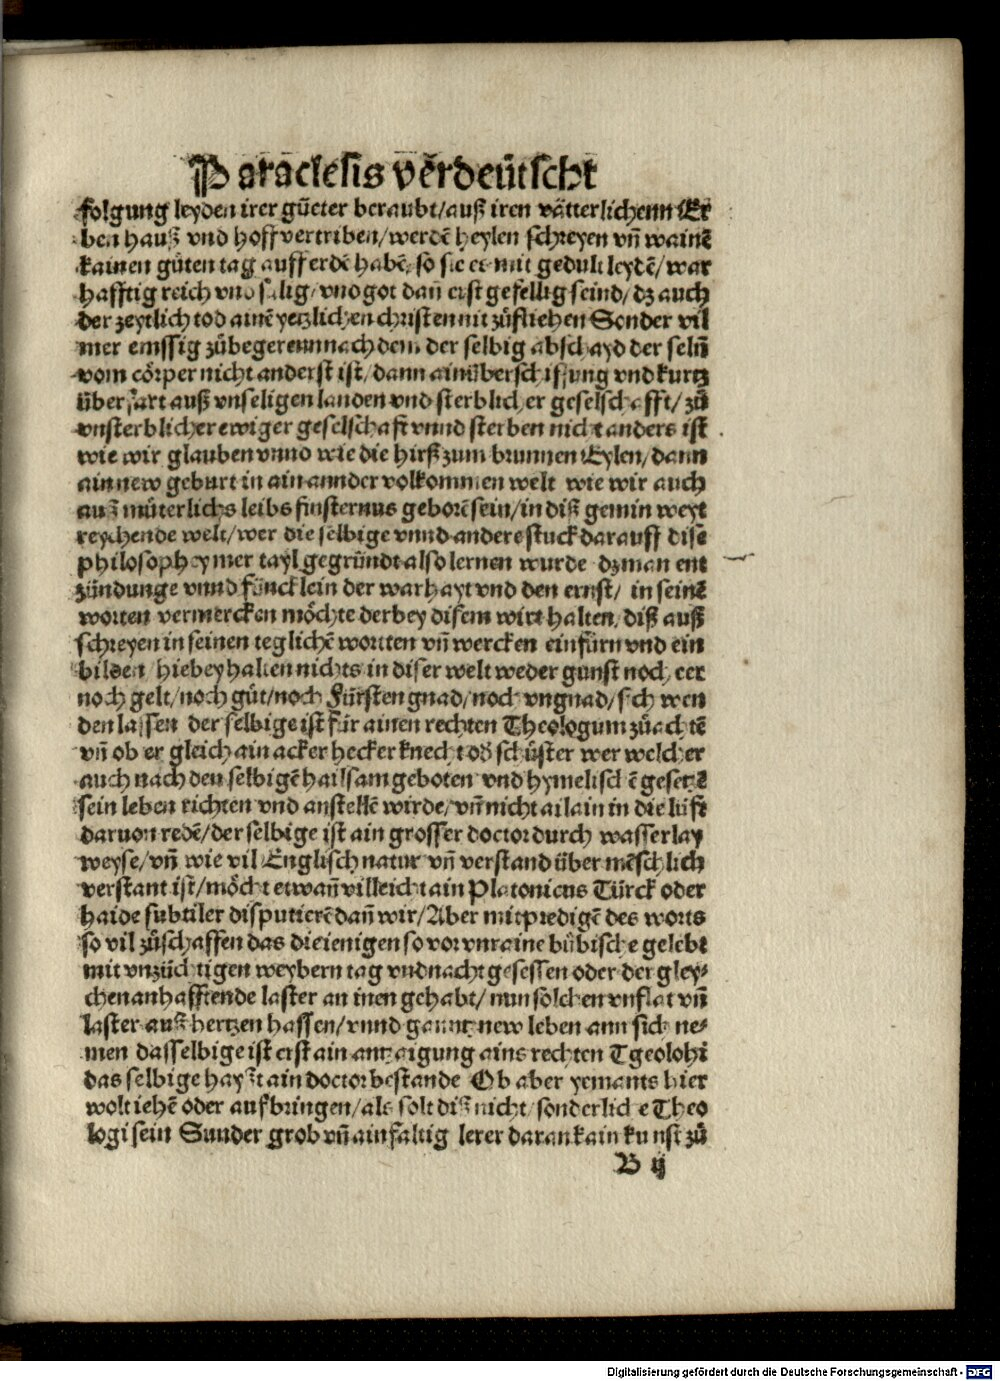 Paraclesis verdeütscht
folgung leyden irer gůeter beraubt/auß iren vätterlichenn Er
ben hauß vnd hoff vertriben/werdē heylen schreyen vñ wainē
kainen gůten tag auff erdē habē/so sie es mit gedult leydē/war
hafftig reich vnd sälig/vnd got dañ erst gefellig seind/dz auch
der zeytlich tod ainē yetzlichen christen nit zůfliehen Sonder vil
mer emssig zůbegerenn nach dem der selbig abschayd der selñ
vom cörper nicht anderst ist/dann ain überschiffung vnd kurtz
überfart auß vnseligen landen vnd sterblicher geselschafft/zů
vnsterblicher ewiger geselschafft vnnd sterben nicht anders ist
wie wir glauben vnnd wie die hirß zum brunnen Eylen/dann
ain new geburt in ain annder volkommen welt wie wir auch
auß můterlichs leibs finsternus geborē sein/in diß gemin weyt
reychende welt/wer die selbige vnnd andere stuck darauff disē
philosophey mer tayl gegründt also lernen wurde dz man ent
zündunge vnnd füncklein der warhayt vnd den ernst/ in seinē
worten vermercken möchte der bey disem wirt halten/diß auß
schreyen in seinen teglichē wortten vñ wercken einfürn vnd ein
bilden hiebey halten nichts in diser welt weder gunst noch eer
noch gelt/noch gůt/noch Fürsten gnad/noch vngnad/sich wen
den lassen der selbige ist für ainen rechten Theologum zůachtē
vñ ob er gleich ain acker hecker knecht od schůster wer welcher
auch nach den selbigē hailsam geboten vnd hymelischē gesetzē
sein leben richten vnd anstellē wirde/vñ nicht ailain in die lüfft
daruon redē/der selbige ist ain grosser doctor durch wasserlay
weyse/vñ wie vil Englisch natur vñ verstand über mēschlich
verstant ist/möcht etwañ villeicht ain Platonicus Türck oder
haide subtiler disputierē dañ wir/Aber mit predigē des worts
so vil zůschaffen das die ienigen so vor vnraine bübische gelebt
mit vnzüchtigen weybern tag vnd nacht gesessen oder der gley⸗
chen anhafftende laster an inen gehabt/nun solchen vnflat vñ
laster auß hertzen hassen/vnnd gantz new leben ann sich ne⸗
men dasselbige ist erst ain antzaigung ains rechten Tgeolohi
das selbige hayßt ain doctor bestande Ob aber yemants hier
wolt iehē oder aufbringen/als solt diß nicht/sonderliche Theo
logi sein Sunder grob vñ ainfaltig lerer daran kain kunst zů
B ij
Digitalisierung gefördert durch die Deutsche Forschungsgemeinschaft - DFG